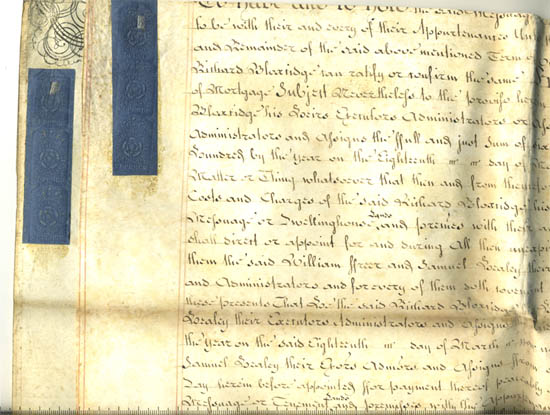 To have and to hold the said Messuage
to be with their and every of their Appurtenances Unto
and Remainder of the said above mentioned Term of
Richard Bloxidge can ratify or confirm the same
of Mortgage Subject Nevertheless to the proviso herein
Bloxidge his Heires Executors Administrators or
Administrators and Assigns the ffull and just Sum of
hundred by the year on the Eighteenth day of
Matter or Thing whatsoever that then and from thenceforth
Costs and Charges of the said Richard Bloxidge his
Messuage or Dwellinghouse Lands and premises with their
shall direct or appoint for and during All then
them the said William ffreer and Samuel Healey their
and Administrators and for every of them doth covenant
these presents That hee the said Richard Bloxidge
Healey their Executors Administrators and Assigns
the year on the said Eighteenth day of March
Samuel Healey their Exors Admors and Assigns ffrom
Day herein before appointed ffor payment thereof peaceably
Messuage or Tenement Lands and premisses with the